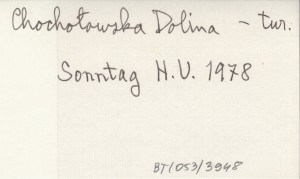 Chochołowska Dolina – tur.
Sonntag H.U. 1978
BT/053/3948